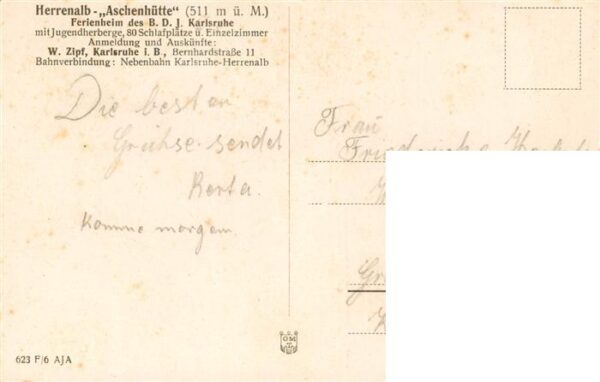 Herrenalb-„Aschenhütte" (511 m ü. M.)
Ferienheim des B. D. J. Karlsruhe
mit Jugendherberge, 80 Schlafplätze u. Einzelzimmer
Anmeldung und Auskünfte:
W. Zipf, Karlsruhe i. B., Bernhardstraße 11
Bahnverbindung: Nebenbahn Karlsruhe-Herrenalb
Die besten
Grühse sendet
Berta.
Komme morgen.
Frau
Friedericke
OM
623 F/6 AJA